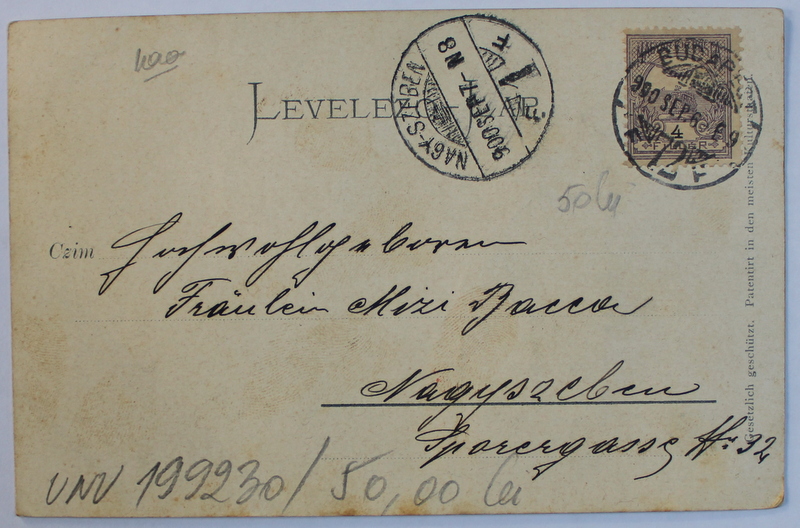 LEVELEZŐ-LAP.
NAGY-SZEBEN
900 SEP. 7. N 8
BUDAPEST
900 SEP. 6
4
FILLÉR
50 lei
Czim
Hochwohlgeboren
Fräulein Mizi Bacca
Nagyszeben
Sporergasse Nr. 32
UNV 199230 / 50,00 lei
Gesetzlich geschützt. Patentirt in den meisten Kulturstaaten.